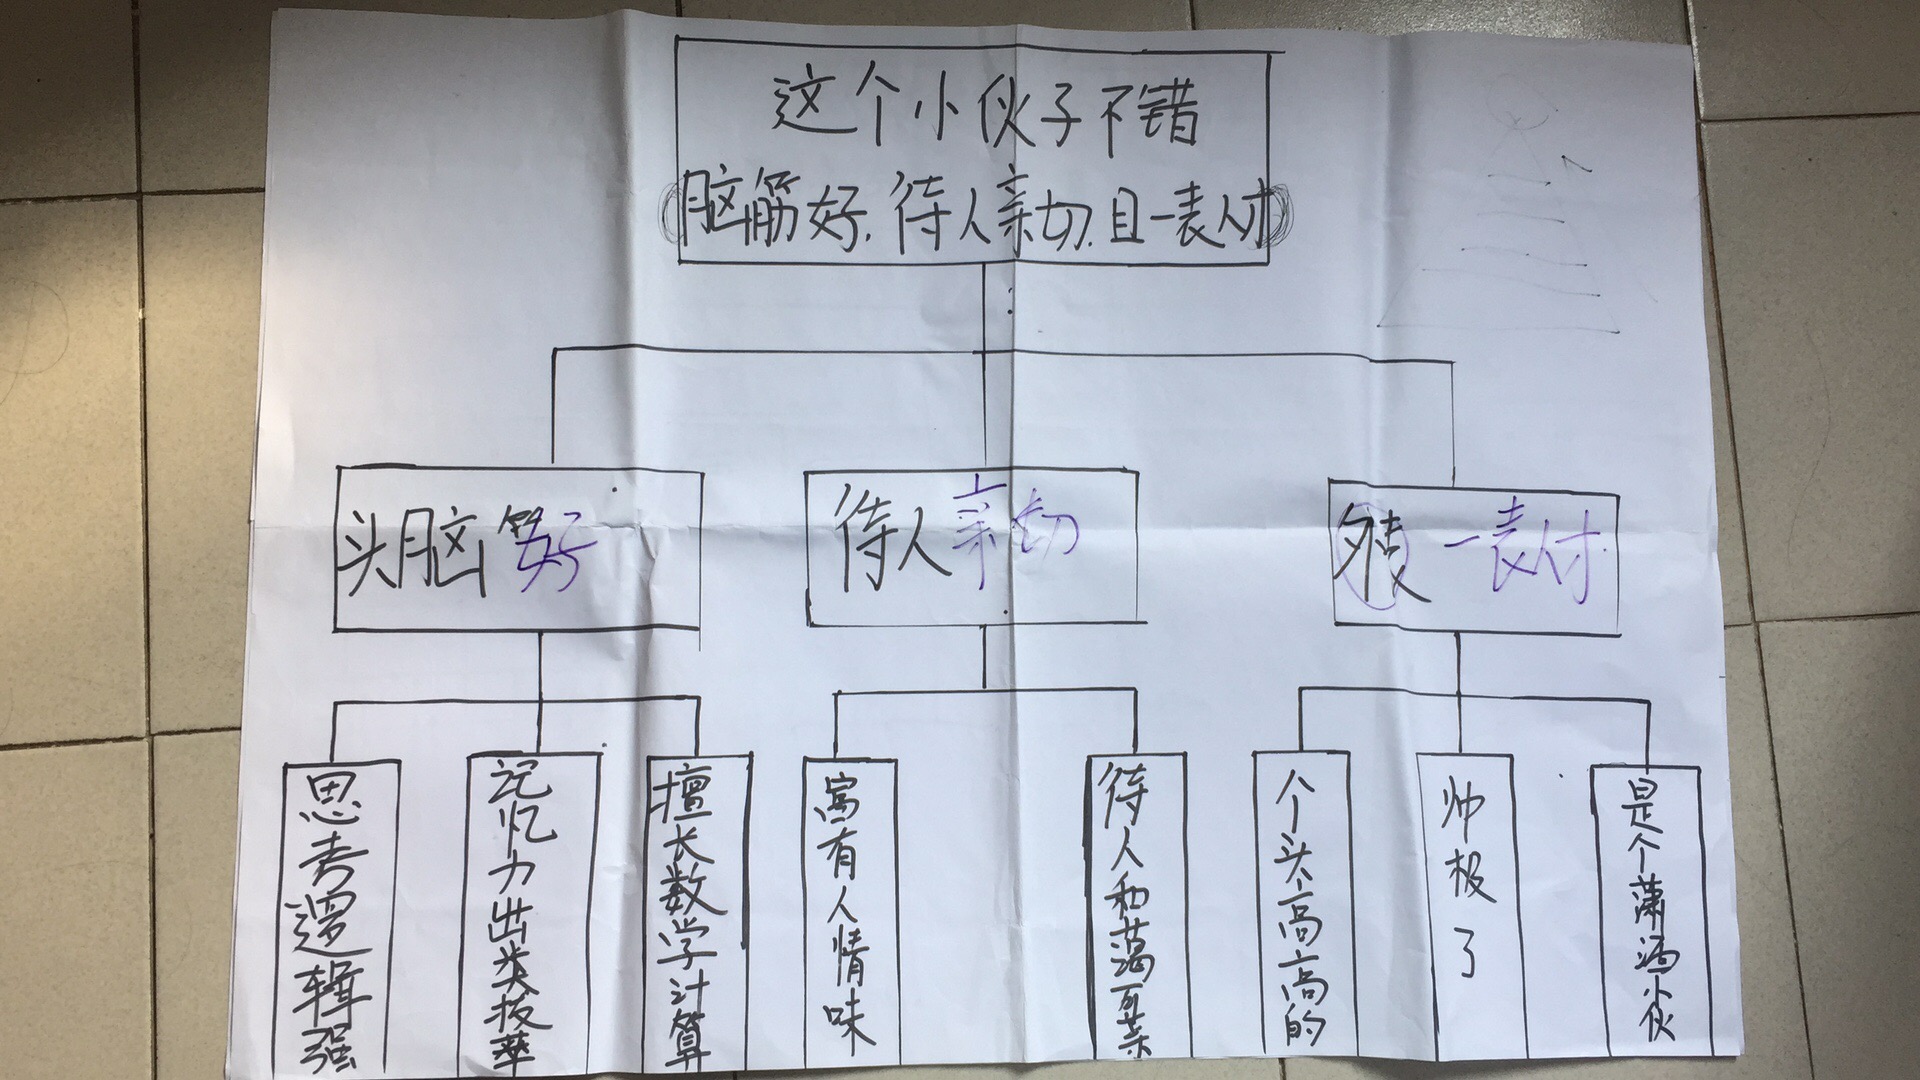 这个小伙子不错
脑筋好.待人亲切.且一表人才
头脑好
待人亲切
外表一表人才
思考逻辑强
记忆力出类拔萃
擅长数学计算
富有人情味
待人和蔼可亲
个头高高的
帅极了
是个潇洒小伙